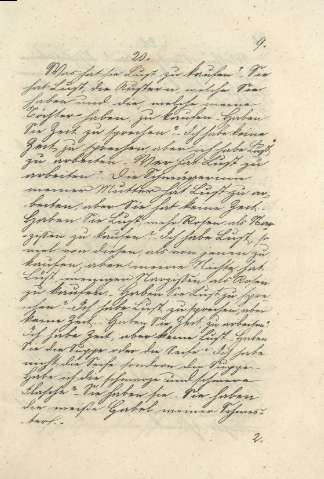 9.
20.
Was hat sie Lust zu kaufen? Sie
hat Lust, die Austern, welche Sie
haben und die welche meine
Töchter haben, zu kaufen. Haben
Sie Zeit zu sprechen? Ich habe keine
Zeit zu sprechen, aber ich habe Lust
zu arbeiten. Wer hat Lust zu
arbeiten? Die Schwägerin
meiner Mutter hat Lust zu ar-
beiten, aber Sie hat keine Zeit.
Haben Sie Lust, mehr Rosen als Nar-
zissen zu kaufen? Ich habe Lust, so
viel von diesen, als von jenen zu
kaufen, aber meine Nichte hat
Lust weniger Narzissen als Rosen
zu kaufen. Haben Sie Lust zu spre-
chen? Ich habe Lust zu sprechen, aber
keine Zeit. Haben Sie Zeit zu arbeiten?
Ich habe Zeit, aber keine Lust. Haben
Sie die Suppe oder die Seife? Ich habe
nicht die Seife sondern die Suppe.
Habe ich die schwarze und schwere
Flasche? Sie haben sie. Sie haben
die weiße Gabel meiner Schwes-
ter.
2.